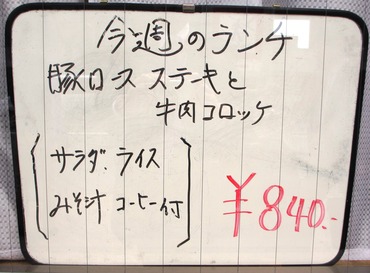 今週のランチ
豚ロース ステーキと
牛肉コロッケ
サラダ、ライス
みそ汁 コーヒー付
¥840.-